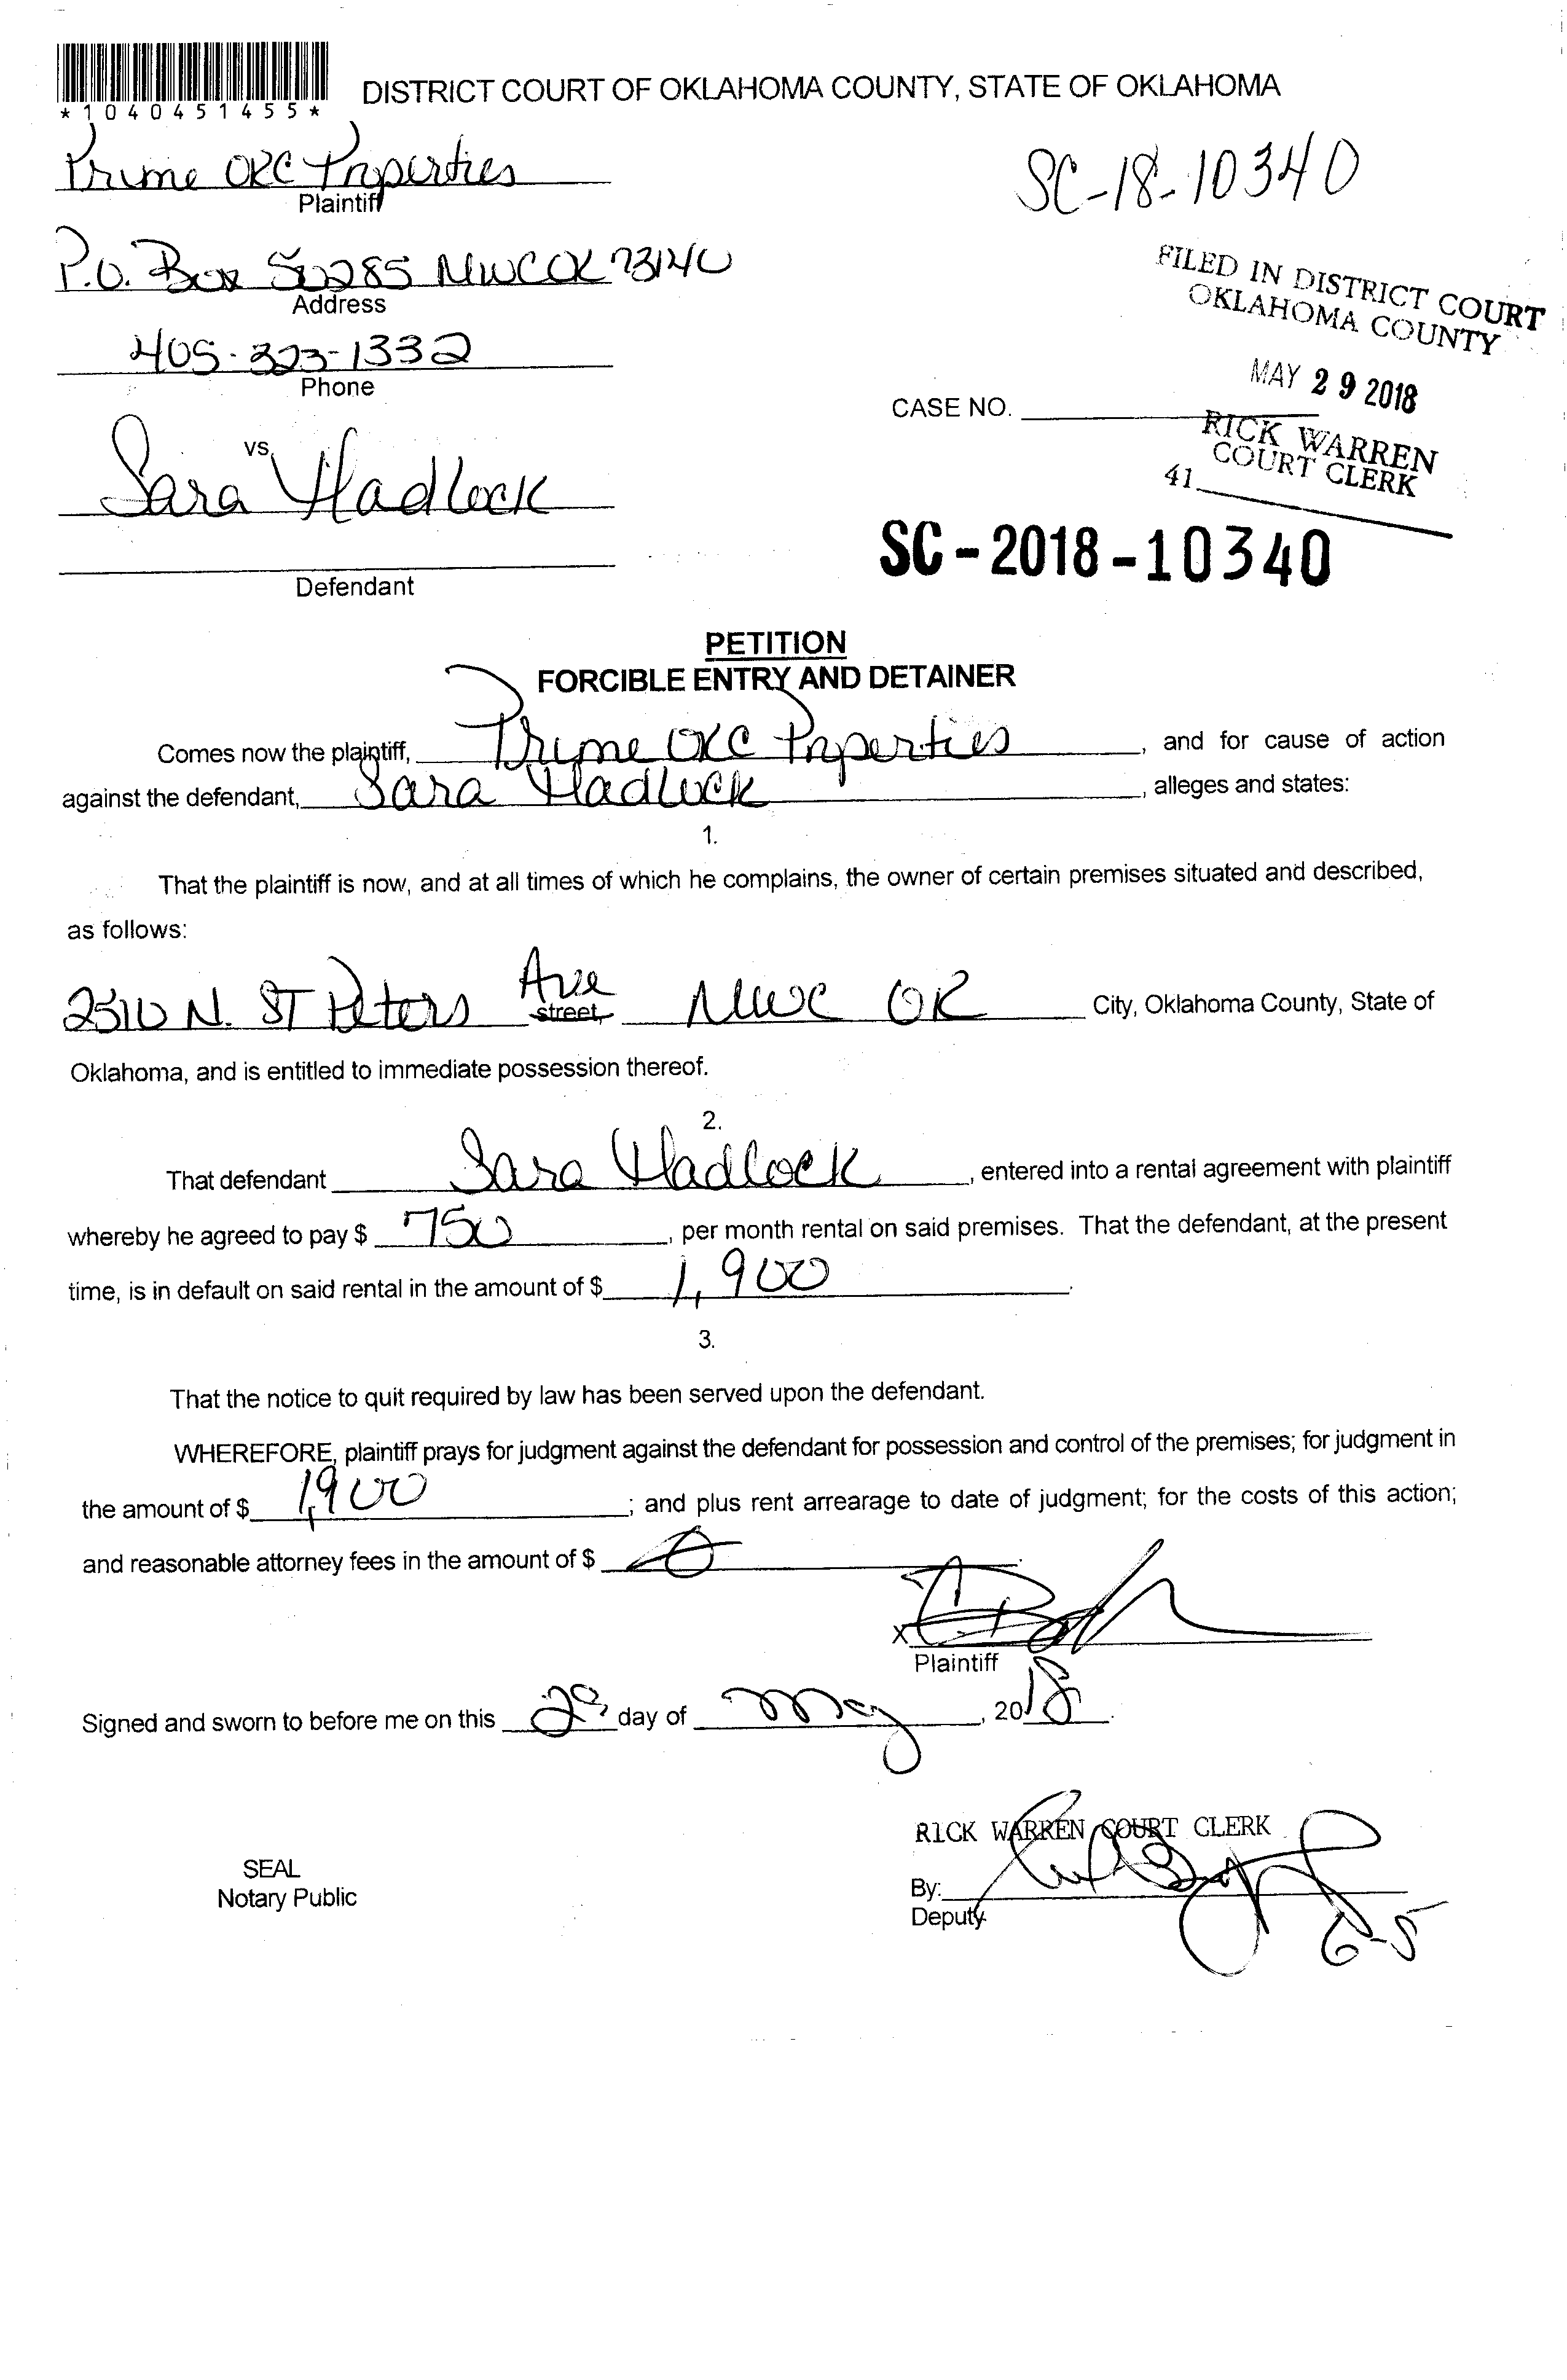 *1040451455*
DISTRICT COURT OF OKLAHOMA COUNTY, STATE OF OKLAHOMA
Prime OKC Properties
Plaintiff
SC-18-10340
P.O. Box 50285 MWC OK 73140
Address
FILED IN DISTRICT COURT
OKLAHOMA COUNTY
405-323-1332
Phone
MAY 29 2018
CASE NO.
RICK WARREN
COURT CLERK
41
vs.
Sara Hadlock
SC-2018-10340
Defendant
PETITION
FORCIBLE ENTRY AND DETAINER
Comes now the plaintiff, Prime OKC Properties, and for cause of action
against the defendant, Sara Hadlock, alleges and states:
1.
That the plaintiff is now, and at all times of which he complains, the owner of certain premises situated and described,
as follows:
2510 N. ST Peters Ave street, MWC OK City, Oklahoma County, State of
Oklahoma, and is entitled to immediate possession thereof.
2.
That defendant Sara Hadlock, entered into a rental agreement with plaintiff
whereby he agreed to pay $ 750, per month rental on said premises. That the defendant, at the present
time, is in default on said rental in the amount of $ 1,900.
3.
That the notice to quit required by law has been served upon the defendant.
WHEREFORE, plaintiff prays for judgment against the defendant for possession and control of the premises; for judgment in
the amount of $ 1,900; and plus rent arrearage to date of judgment; for the costs of this action;
and reasonable attorney fees in the amount of $ 0.
X
Plaintiff
Signed and sworn to before me on this 29 day of May, 2018.
RICK WARREN COURT CLERK
SEAL
Notary Public
By:
Deputy
6-5